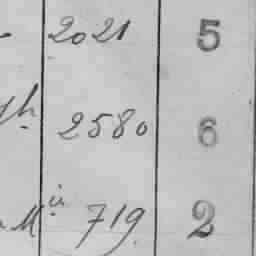 2021 5
2580 6
M in 719 2